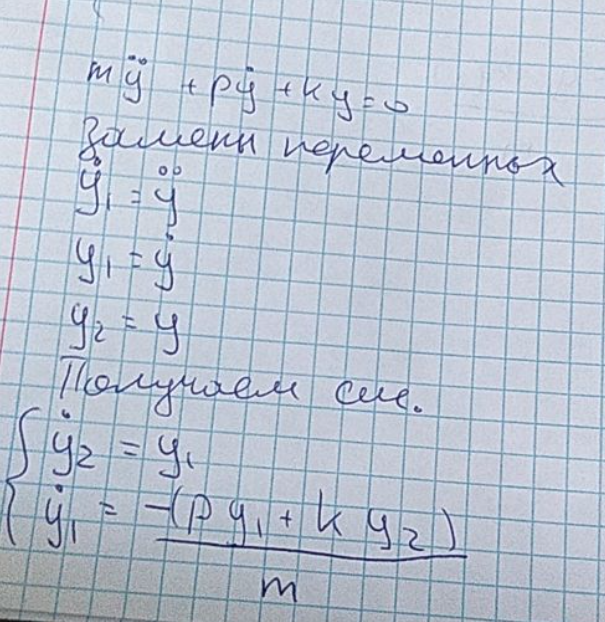 mÿ + pẏ + ky = 0
Замены переменных
ẏ₁ = ÿ
y₁ = ẏ
y₂ = y
Получаем сис.
{ ẏ₂ = y₁
ẏ₁ = -(py₁ + ky₂) / m